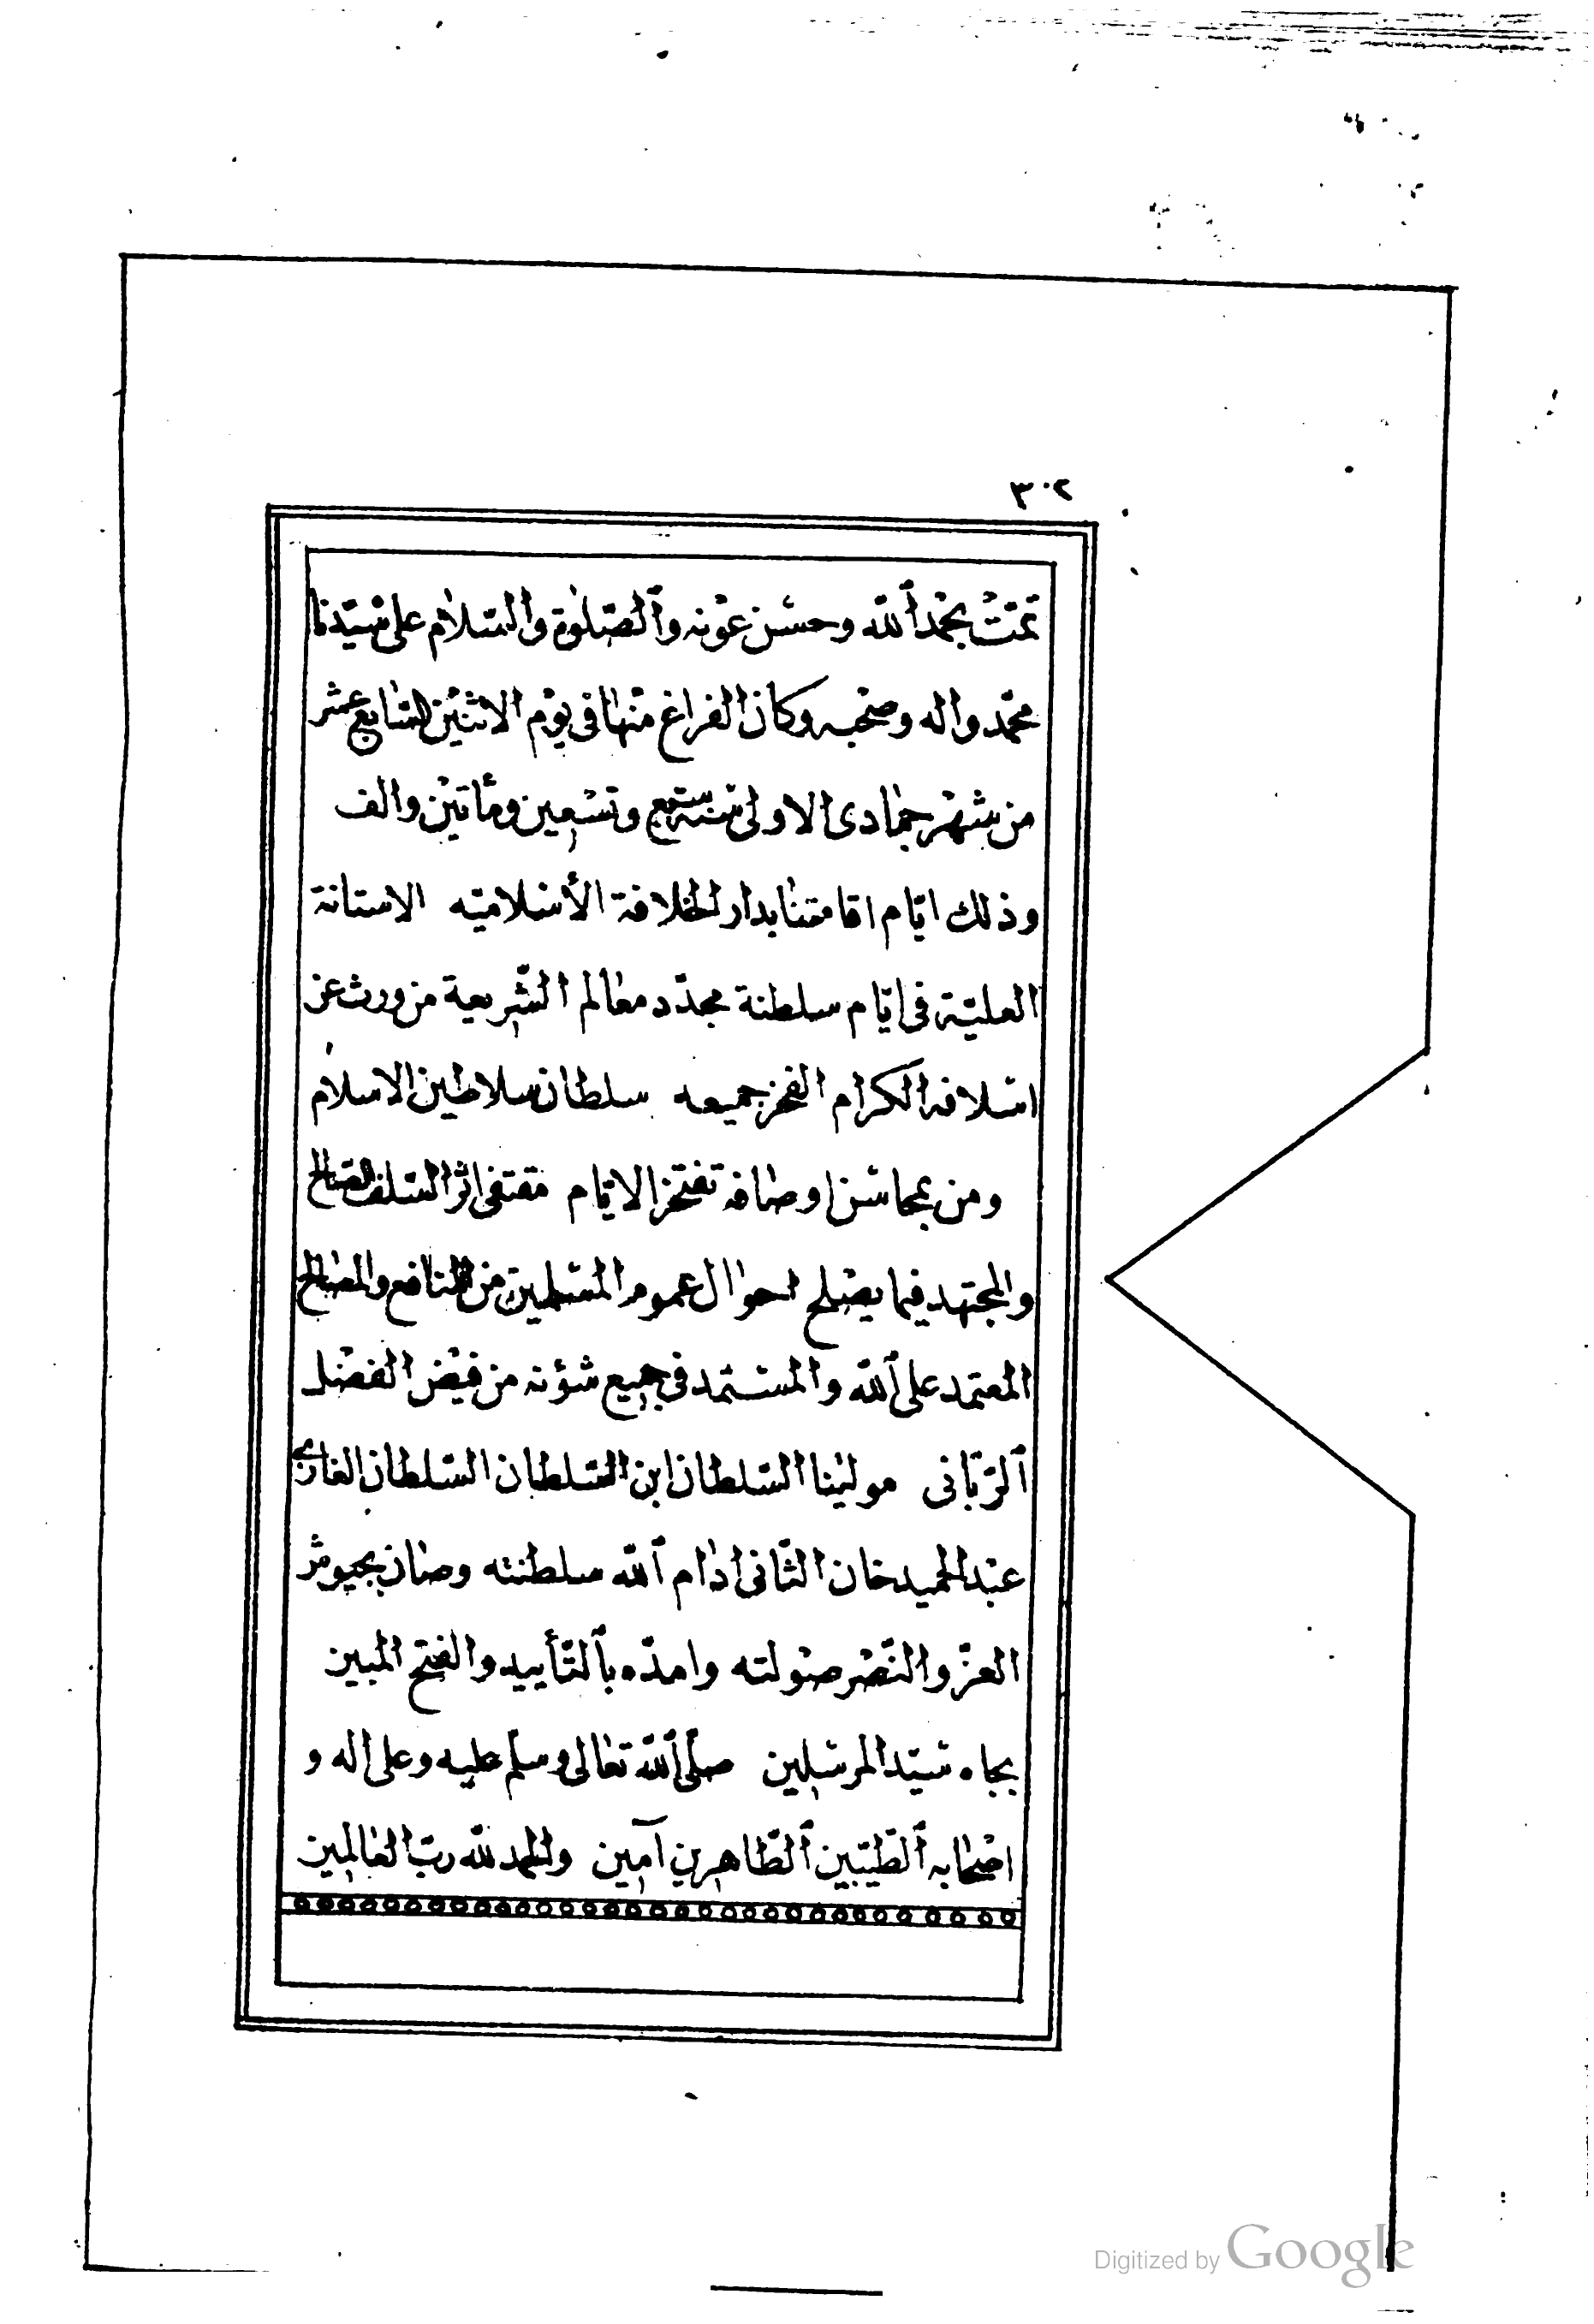 ٣٠٢
تمّت بحمد ٱللّه وحسن عونه وٱلصّلوة والسّلام على سيّدنا
محمّد واله وصحبه وكان الفراغ منها فى يوم الاثنين السّابع عشر
من شهر جمادى الاولى سنة سبع وتسعين ومأتين والف
وذلك ايّام اقامتنا بدار الخلافة الأسلاميّه الاستانة
العليّة فى ايّام سلطنة مجدّد معالم الشّريعة من ورث عن
اسلافه الكرام الفخر جميعه سلطان سلاطين الاسلام
ومن بمحاسن اوصافه تفتخر الايّام مقتفى اثر السّلف الصّالح
والمجتهد فيما يصلح احوال عموم المسلمين من المنافع والمصالح
المعتمد على ٱللّه والمستمد فى جميع شؤنه من فيض الفضل
ٱلرّبّانى مولينا السّلطان ابن السّلطان السّلطان الغازى
عبد الحميد خان الثّانى ادام ٱللّه سلطنته وصان بجيوش
العزّ والنّصر صولته وامدّه بٱلتّأييد والفتح المبين
بجاه سيّد المرسلين صلّى ٱللّه تعالى وسلّم عليه وعلى اله و
اصحابه ٱلطّيّبين ٱلطّاهرين آمين والحمد للّه ربّ العالمين
Digitized by Google